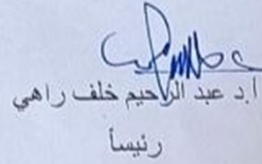 أ.د عبد الرحيم خلف راهي
رئيساً